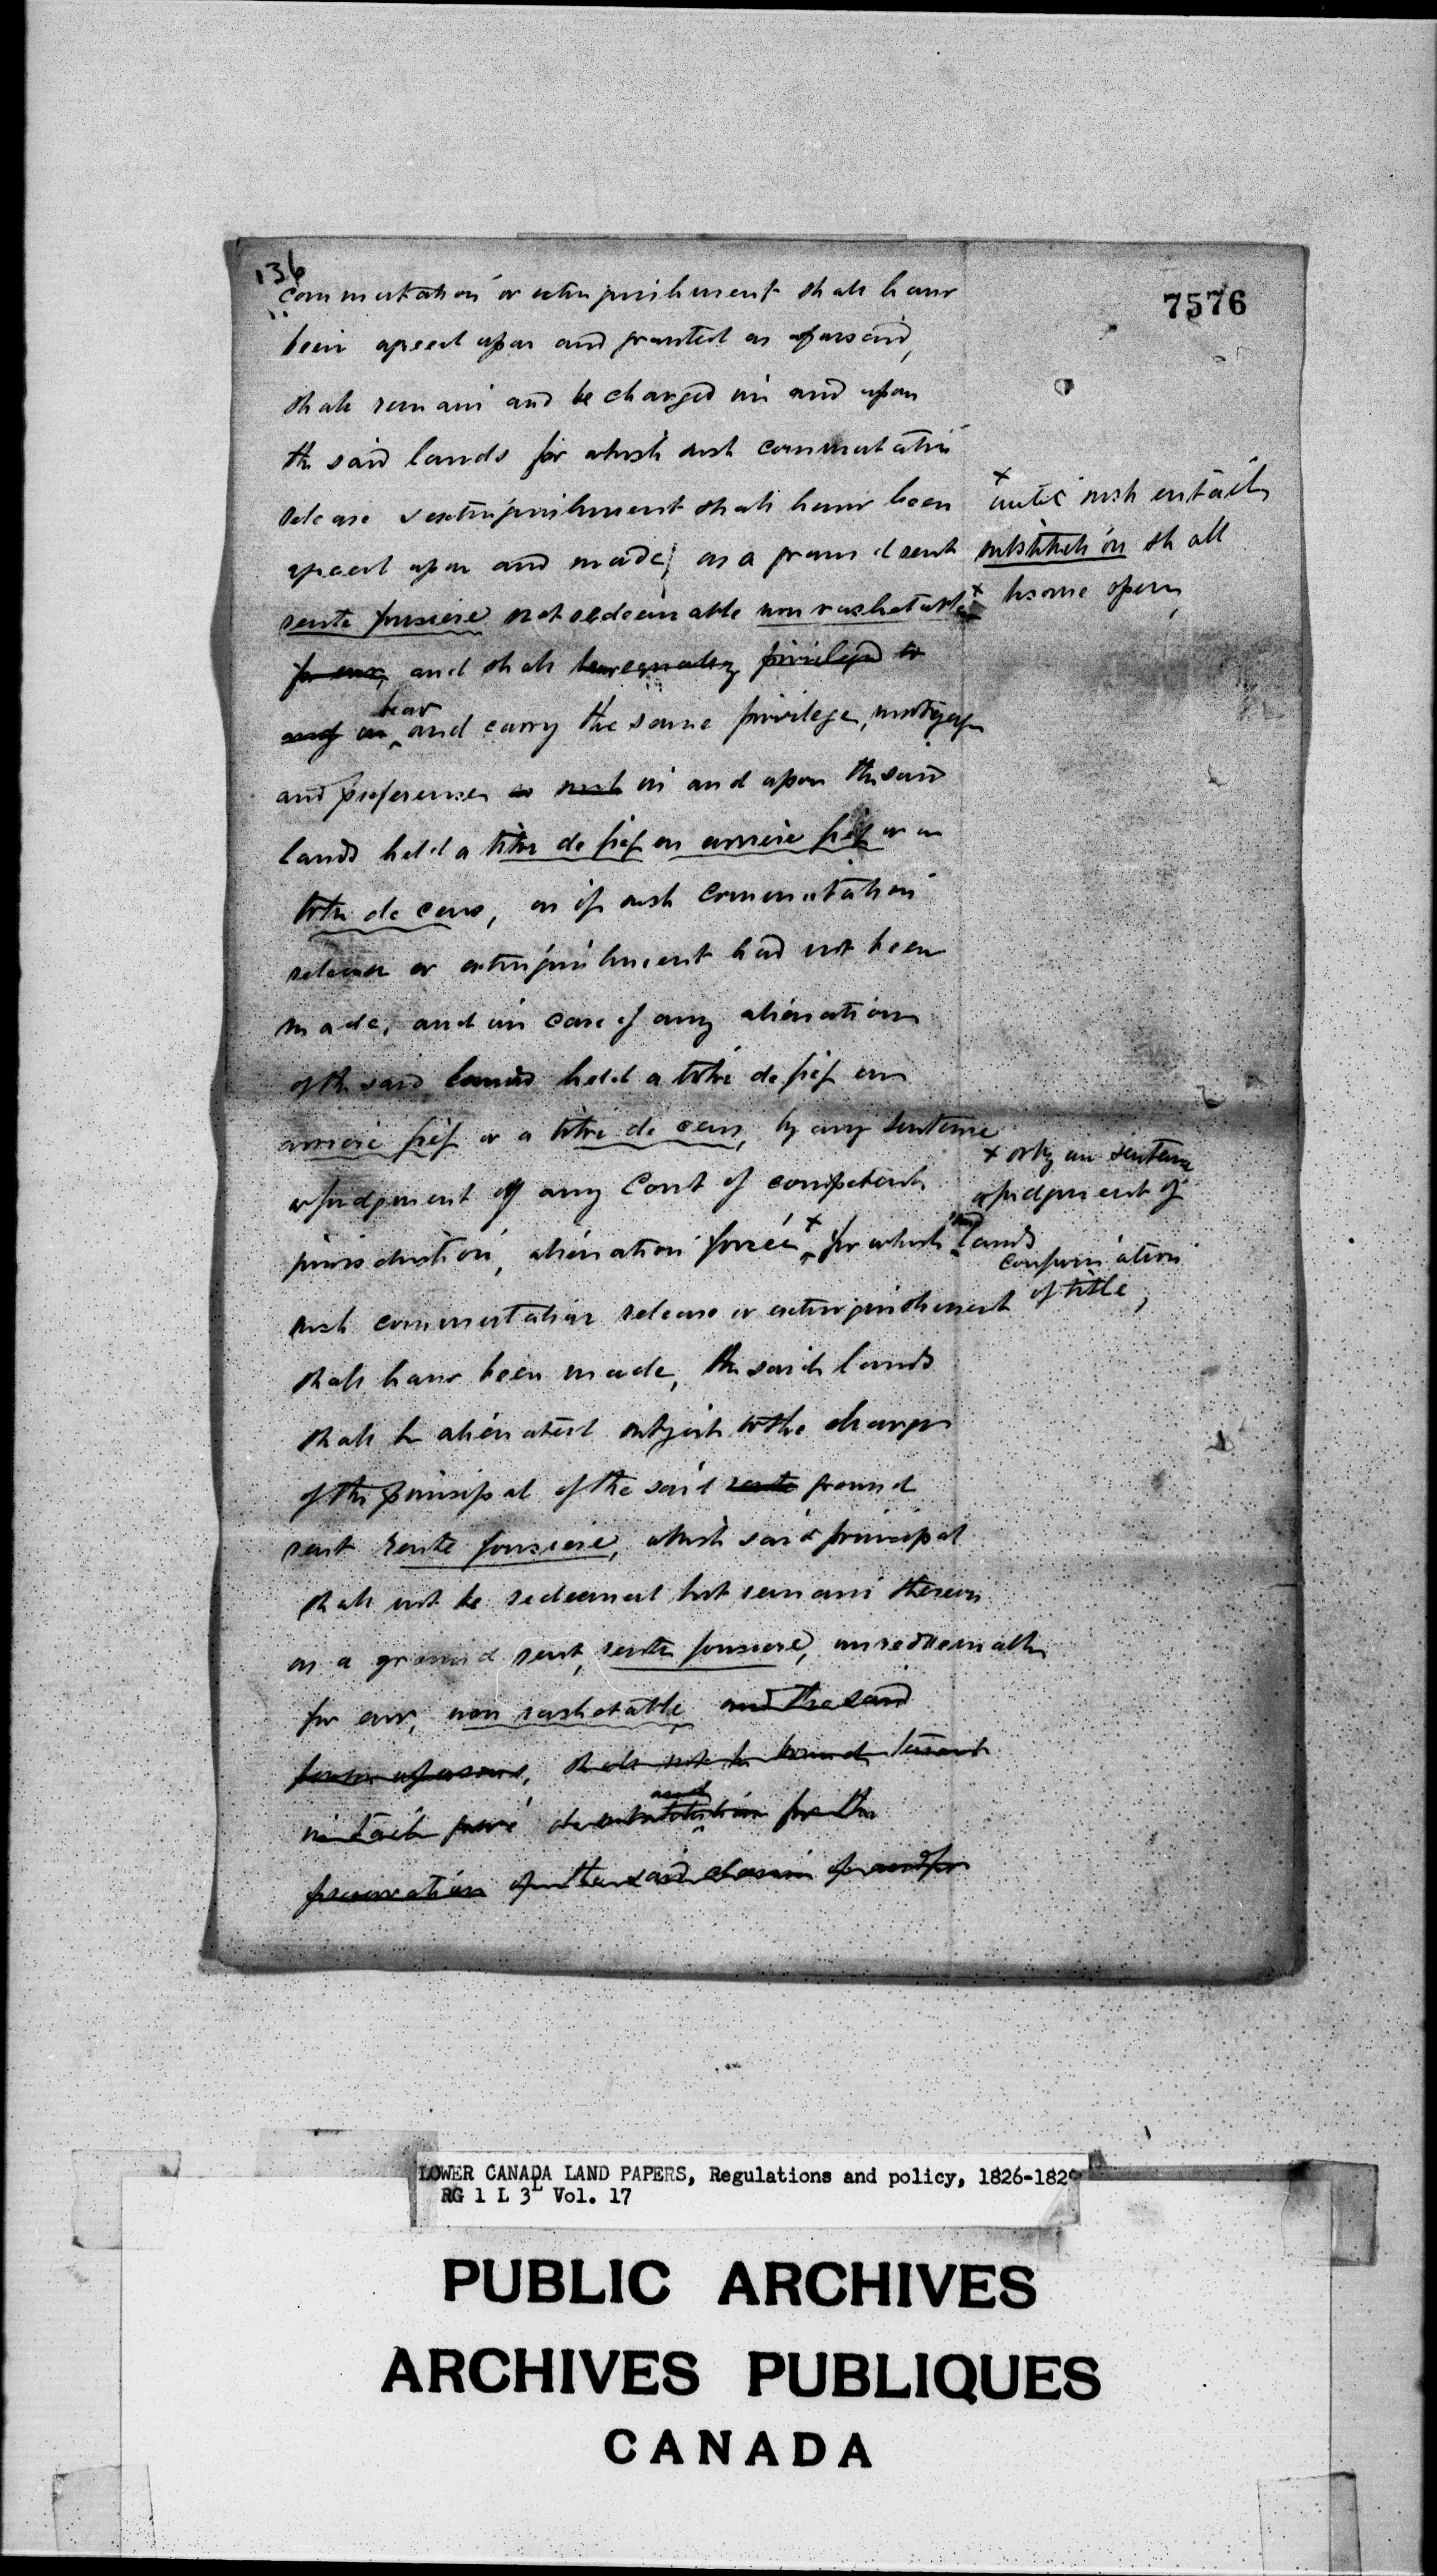 136
7576
commutation or extinguishment shall have
been agreed upon and granted as aforesaid,
shall remain and be charged in and upon
the said lands for which such commutation
release or extinguishment shall have been
agreed upon and made, as a ground rent
rente fonciere not redeemable non rachetable x
x until such entail
substitution shall
become open,
for ever, and shall bear equally privileged to
and as bear and carry the same privilege, mortgage
and preference as such in and upon the said
lands held a titre de fief en arriere fief or a
titre de cens, as if such commutation
release or extinguishment had not been
made, and in case of any alienation
of the said lands held a titre de fief en
arriere fief or a titre de cens, by any sentence
or judgment of any Court of competent
jurisdiction, alienation forcée x for which said lands
x or by any sentence
or judgment of
confirmation
of title,
such commutation release or extinguishment
shall have been made, the said lands
shall be alienated subject to the charge
of the principal of the said rente ground
rent rente fonciere, which said principal
shall not be redeemed but remain thereon
as a ground rent, rente fonciere, unredeemable
for ever, non rachetable, and the said
shall not be bound tenant
in tail substitution and for the
preservation of the said and for
LOWER CANADA LAND PAPERS, Regulations and policy, 1826-1829
RG 1 L 3L Vol. 17
PUBLIC ARCHIVES
ARCHIVES PUBLIQUES
CANADA